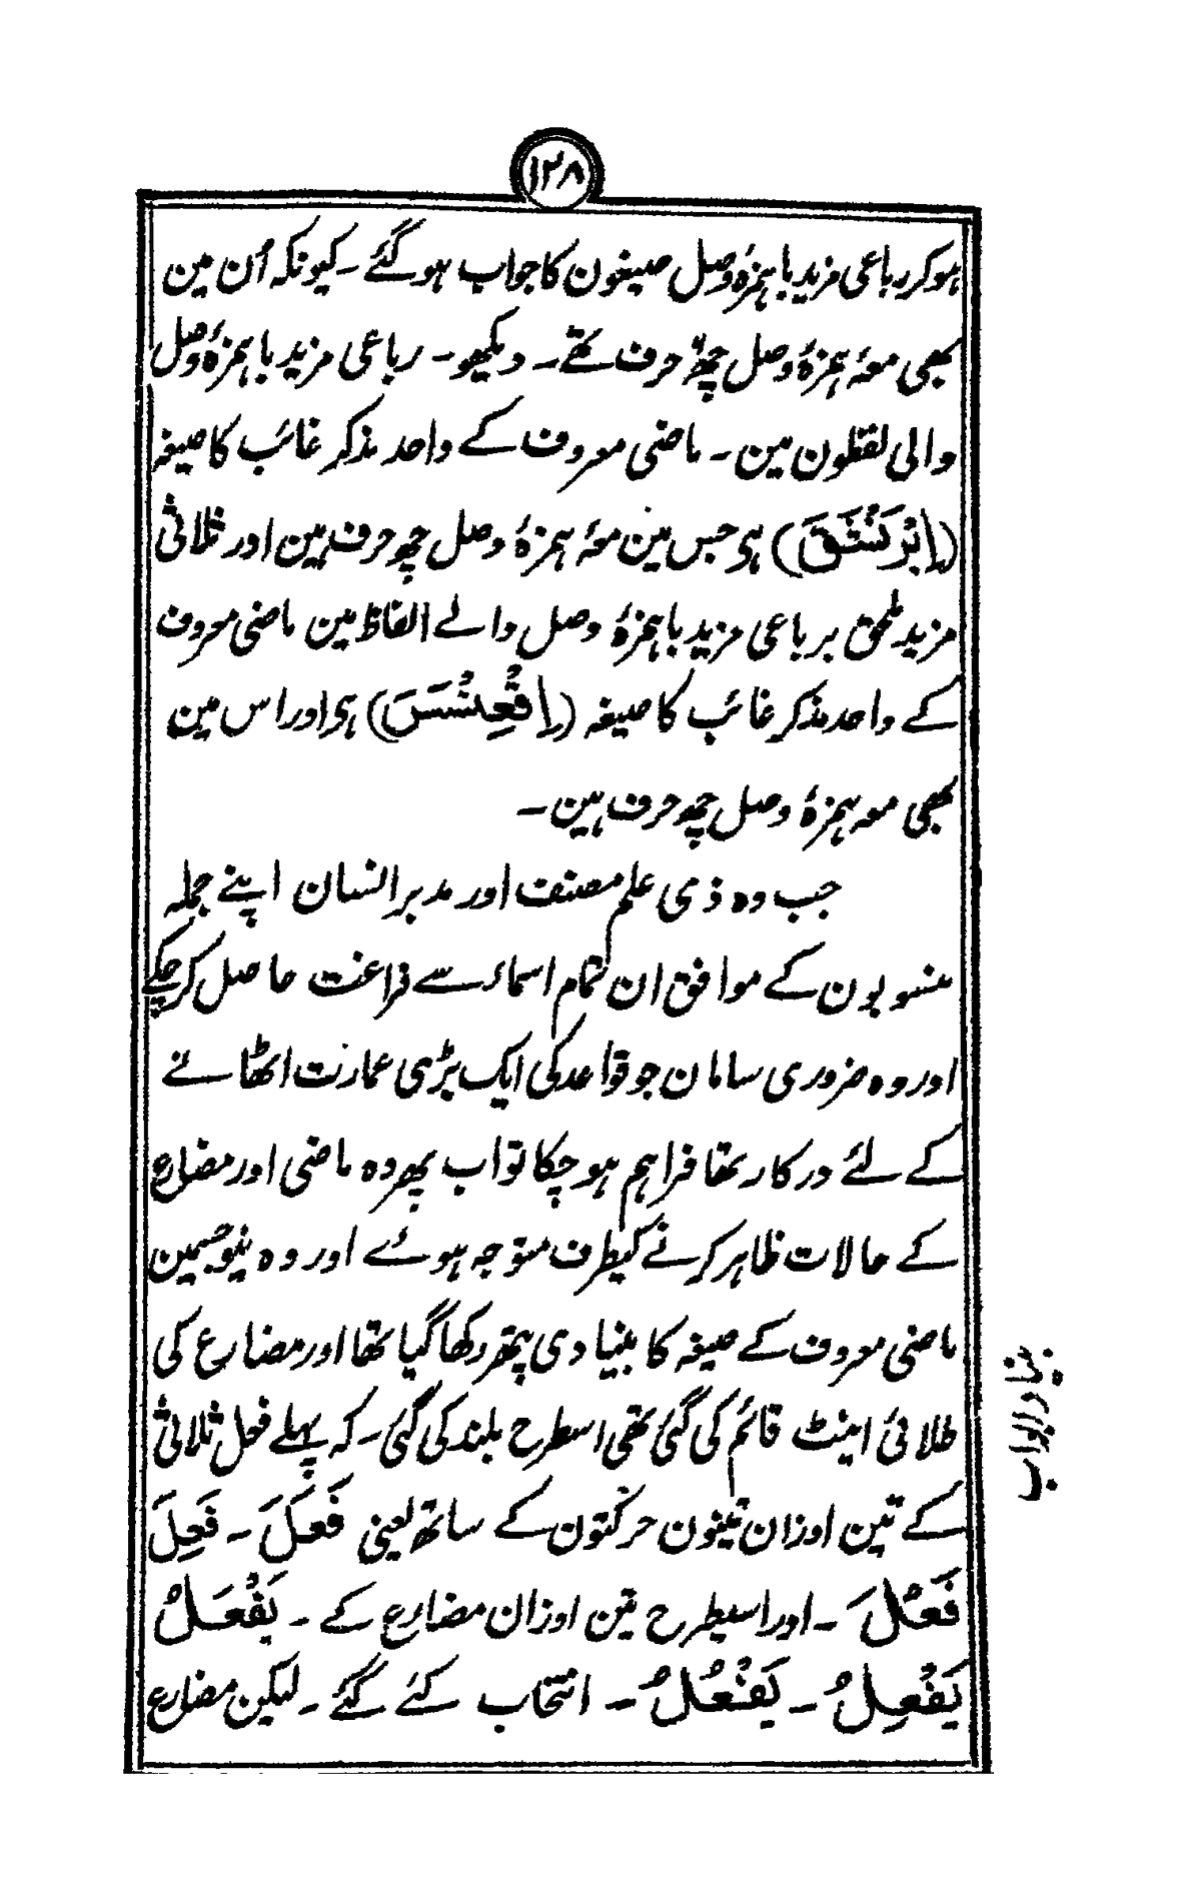 ۱۲۸
ہوکر رباعی مزید با ہمزۂ وصل صیغون کا جواب ہو گئے ۔ کیونکہ اُن مین
بھی معہ ہمزۂ وصل چھ حرف تھے ۔ دیکھو ۔ رباعی مزید با ہمزۂ وصل
والی لفظون مین ۔ ماضی معروف کے واحد مذکر غائب کا صیغہ
(اِبْرَنْشَقَ) ہی جس مین معہ ہمزۂ وصل چھ حرف ہین اور ثلاثی
مزید ملحق برباعی مزید با ہمزۂ وصل والے الفاظ مین ماضی معروف
کے واحد مذکر غائب کا صیغہ (اِقْعِنْسَسَ) ہی اور اس مین
بھی معہ ہمزۂ وصل چھ حرف ہین ۔
جب وہ ذی علم مصنف اور مدبر انسان اپنے جملہ
منسوبون کے موافق ان تمام اسماء سے فراغت حاصل کرچکے
اور وہ ضروری سامان جو قواعد کی ایک بڑی عمارت اٹھانے
کے لئے درکار تھا فراہم ہو چکا تو اب پھر وہ ماضی اور مضارع
کے حالات ظاہر کرنے کیطرف متوجہ ہوئے اور وہ نیو جسمین
ماضی معروف کے صیغہ کا بنیادی پتھر رکھا گیا تھا اور مضارع کی
طلائی اینٹ قائم کی گئی تھی اسطرح بلند کی گئی ۔ کہ پہلے فعل ثلاثی
کے تین اوزان تینون حرکتون کے ساتھ یعنی فَعَلَ ۔ فَعِلَ
فَعُلَ ۔ اور اسیطرح تین اوزان مضارع کے ۔ یَفْعَلُ
یَفْعِلُ ۔ یَفْعُلُ ۔ انتخاب کئے گئے ۔ لیکن مضارع
ابواب